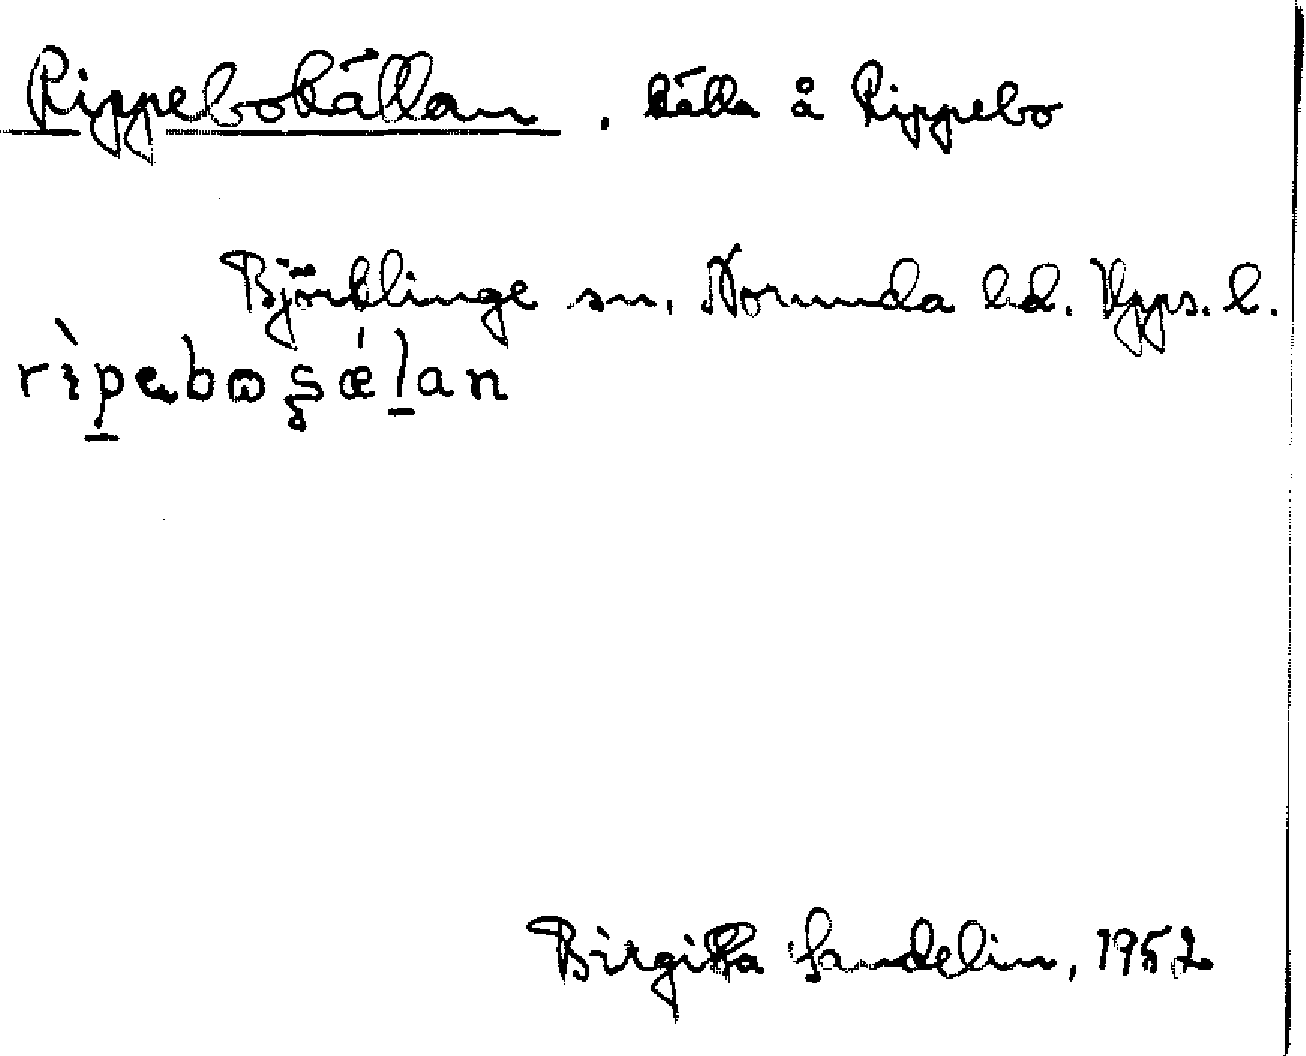 Rippebokällan . källa å Rippebo
Björklinge sn. Norunda hd. Upps. l.
Birgitta Sandelin, 1952